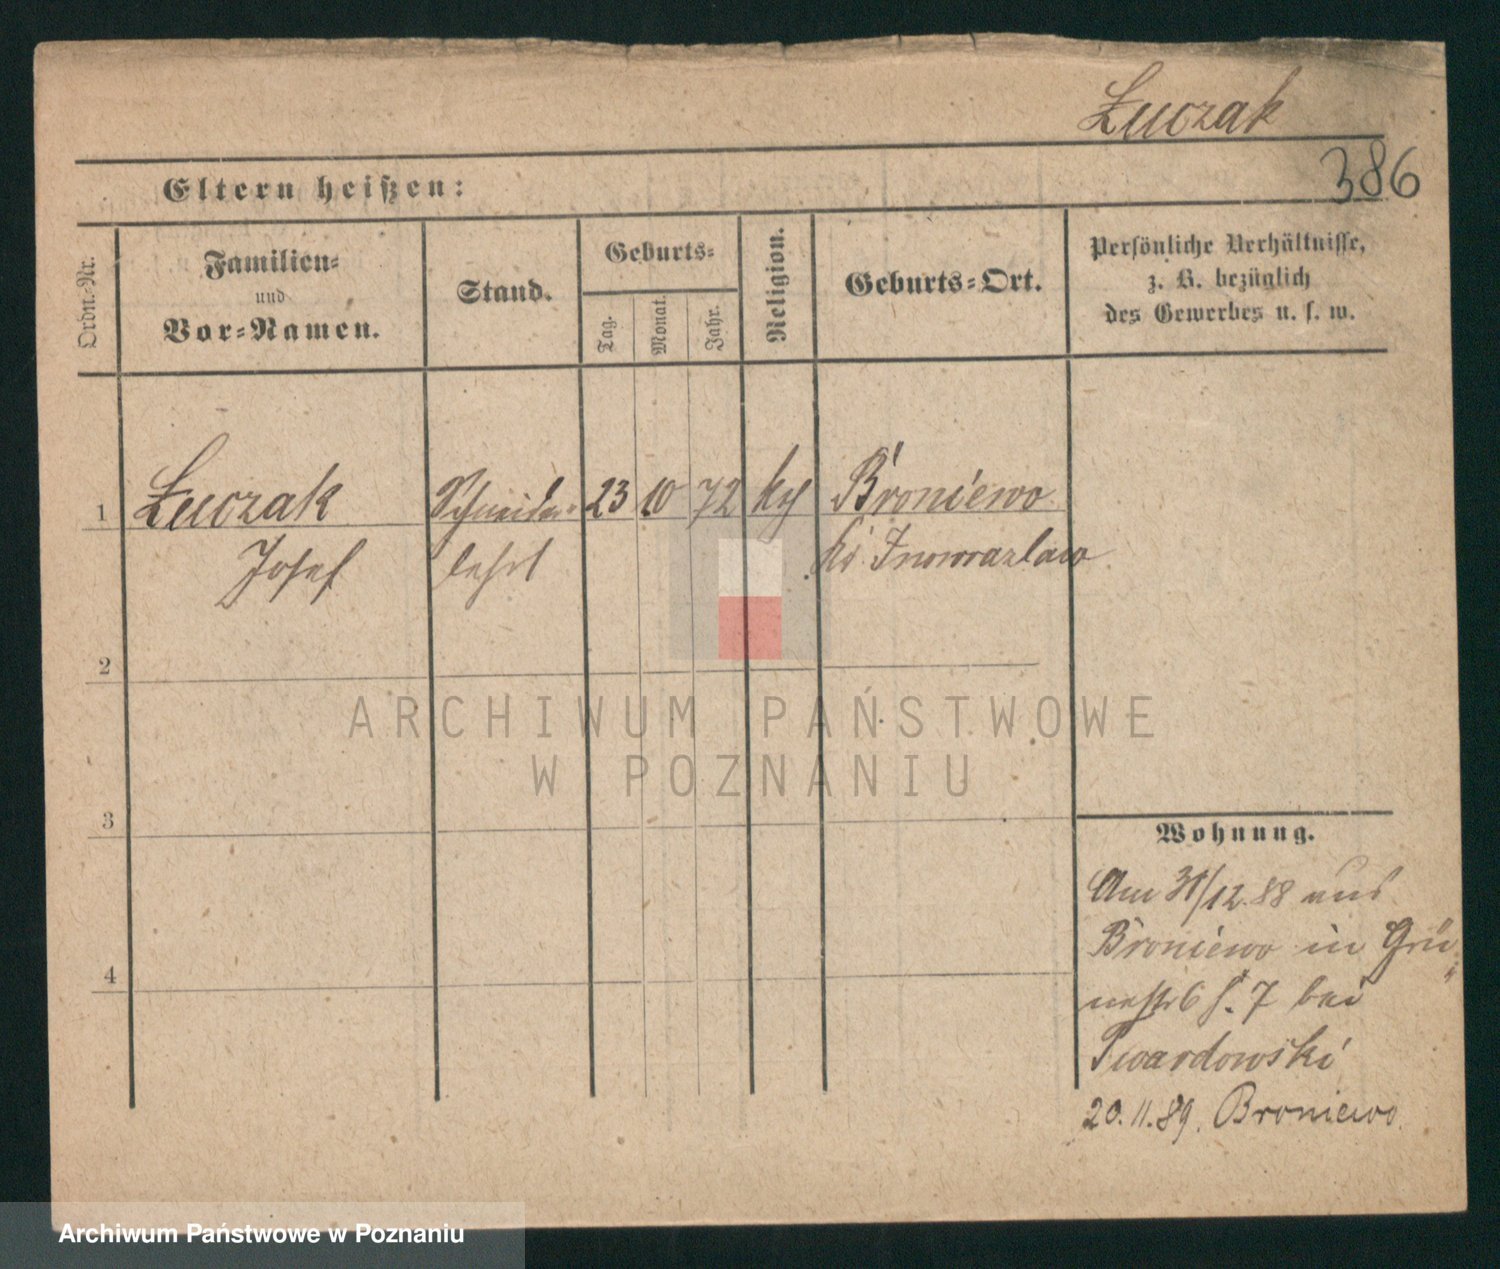 Łuczak
386
Eltern heißen:
Ordn.-Nr.
Familien-
und
Vor-Namen.
Stand.
Geburts-
Tag.
Monat.
Jahr.
Religion.
Geburts-Ort.
Persönliche Verhältnisse,
z. B. bezüglich
des Gewerbes u. s. w.
1 Łuczak Schneider- 23 10 72 Broniewo
Josef lehrl Inowrazlaw
2
3
4
Wohnung.
Am 31/12.88 aus
Broniewo in Grü
7 bei
Twardowski
20.11.89. Broniewo
ARCHIWUM PAŃSTWOWE
W POZNANIU
Archiwum Państwowe w Poznaniu